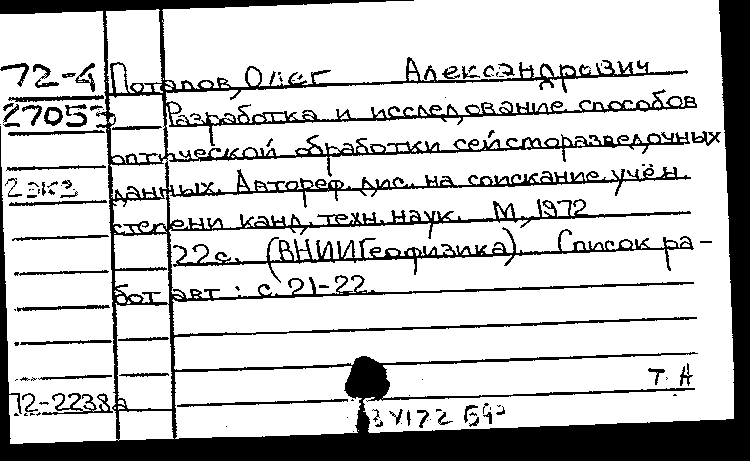 72-4 Потапов, Олег Александрович
27053 Разработка и исследование способов
оптической обработки сейсморазведочных
2 экз данных. Автореф. дис. на соискание учён.
степени канд. техн. наук. М., 1972
22 с. (ВНИИГеофизика). Список ра-
бот авт : с. 21-22.
Т. А
72-2238а